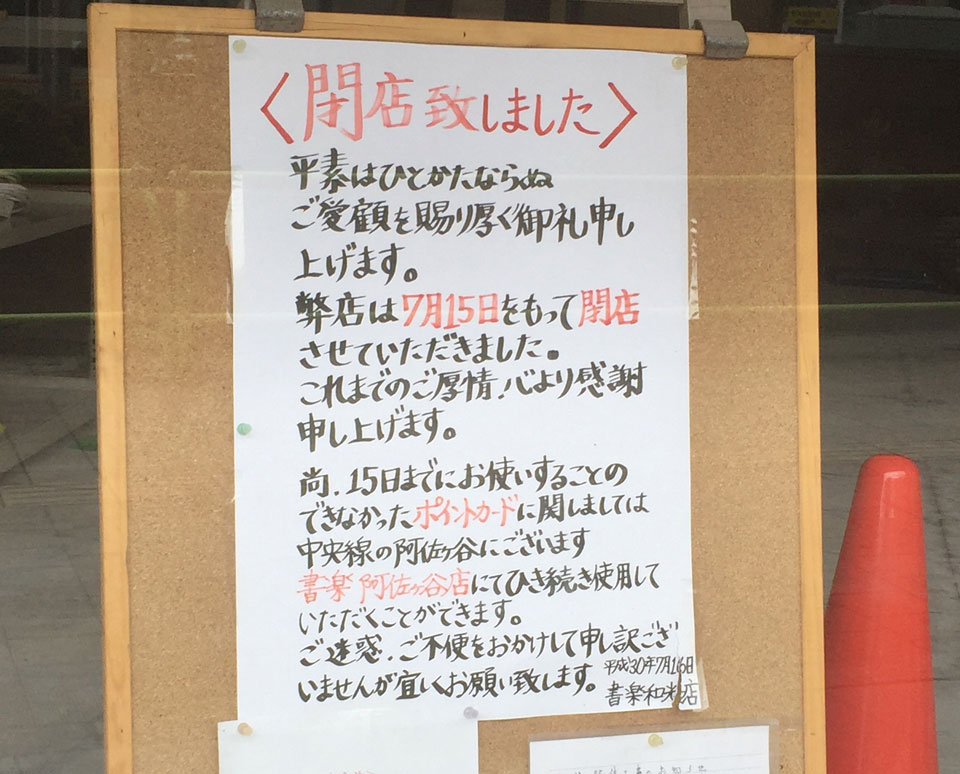 〈閉店致しました〉
平素はひとかたならぬ
ご愛顧を賜り厚く御礼申し
上げます。
弊店は7月15日をもって閉店
させていただきました。
これまでのご厚情、心より感謝
申し上げます。
尚、15日までにお使いすることの
できなかったポイントカードに関しましては
中央線の阿佐ヶ谷にございます
書楽 阿佐ヶ谷店にてひき続き使用して
いただくことができます。
ご迷惑、ご不便をおかけして申し訳ござ
いませんが宜しくお願い致します。
平成30年7月16日
書楽和光店